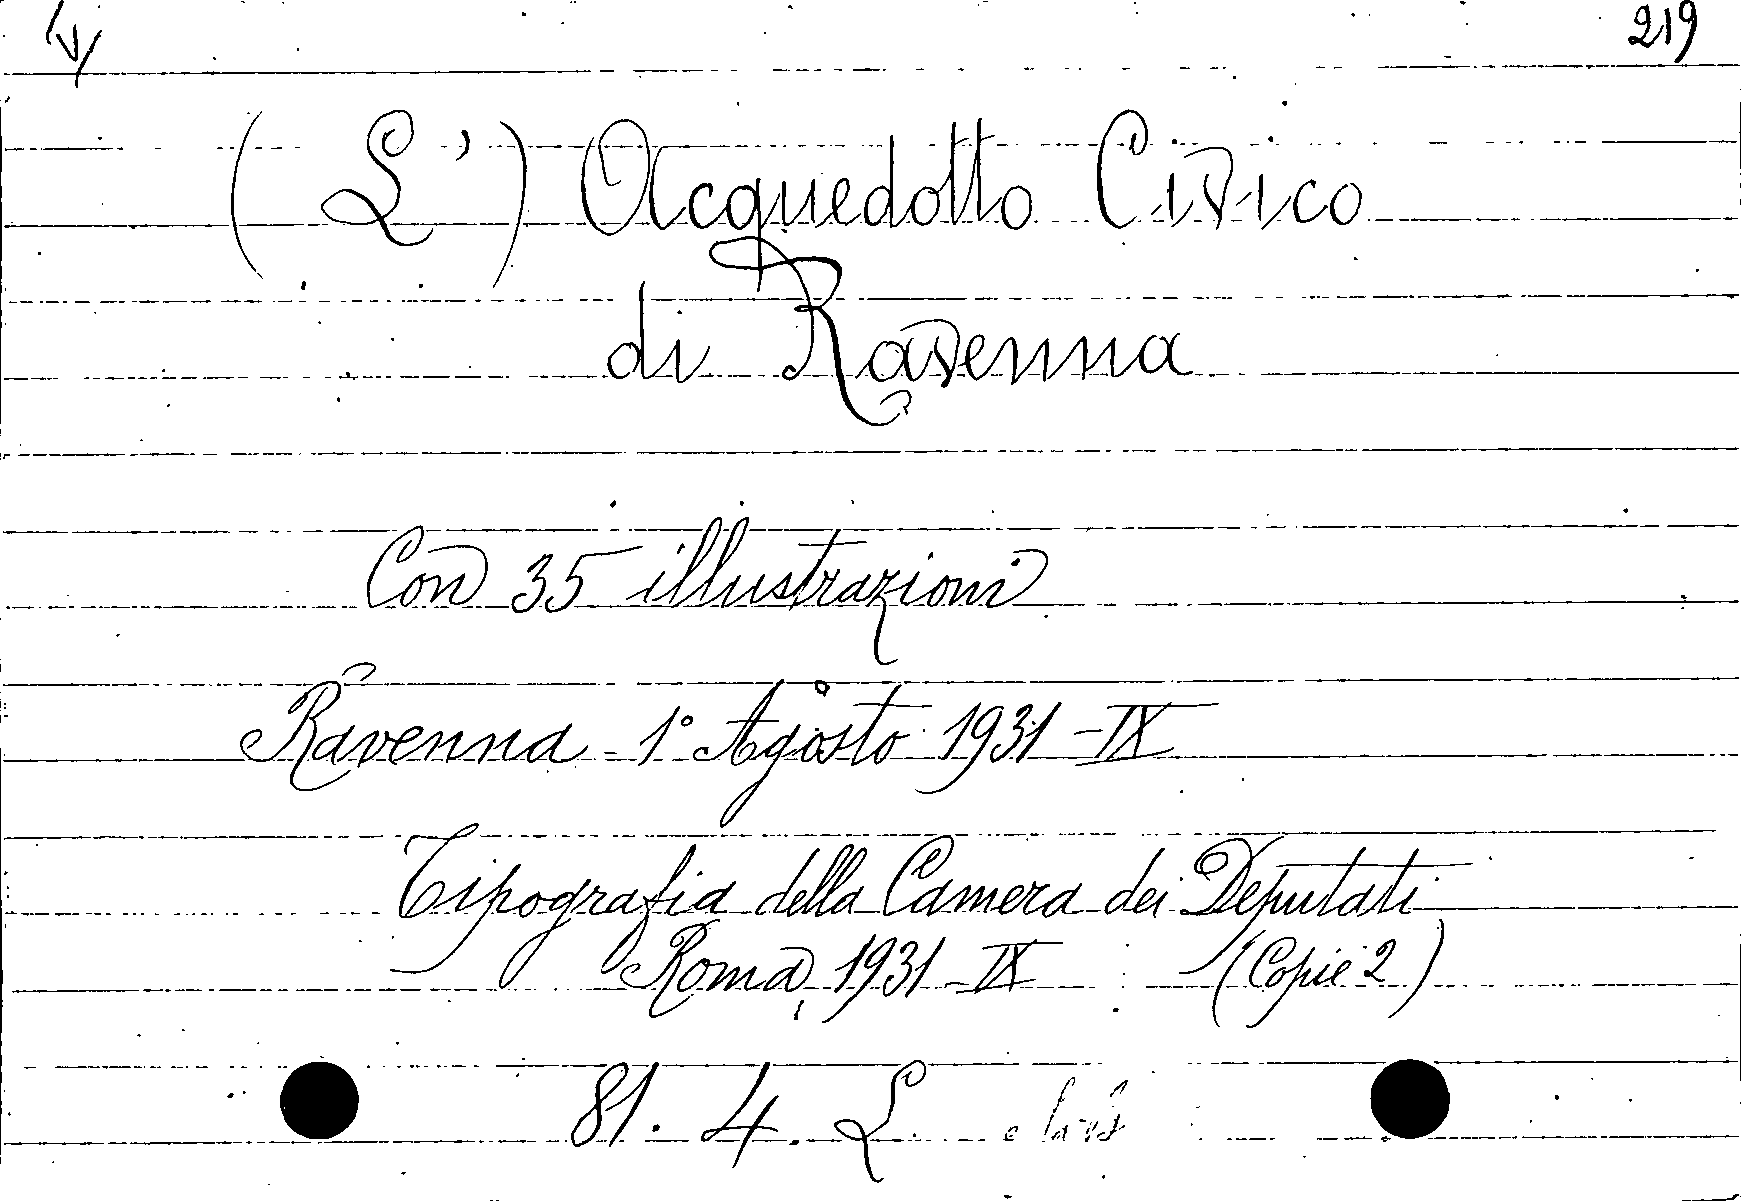 219
(L') Acquedotto Civico
di Ravenna
Con 35 illustrazioni
Ravenna - 1° Agosto 1931 - IX
Tipografia della Camera dei Deputati
Roma, 1931 - IX (Copie 2)
81. 4. L